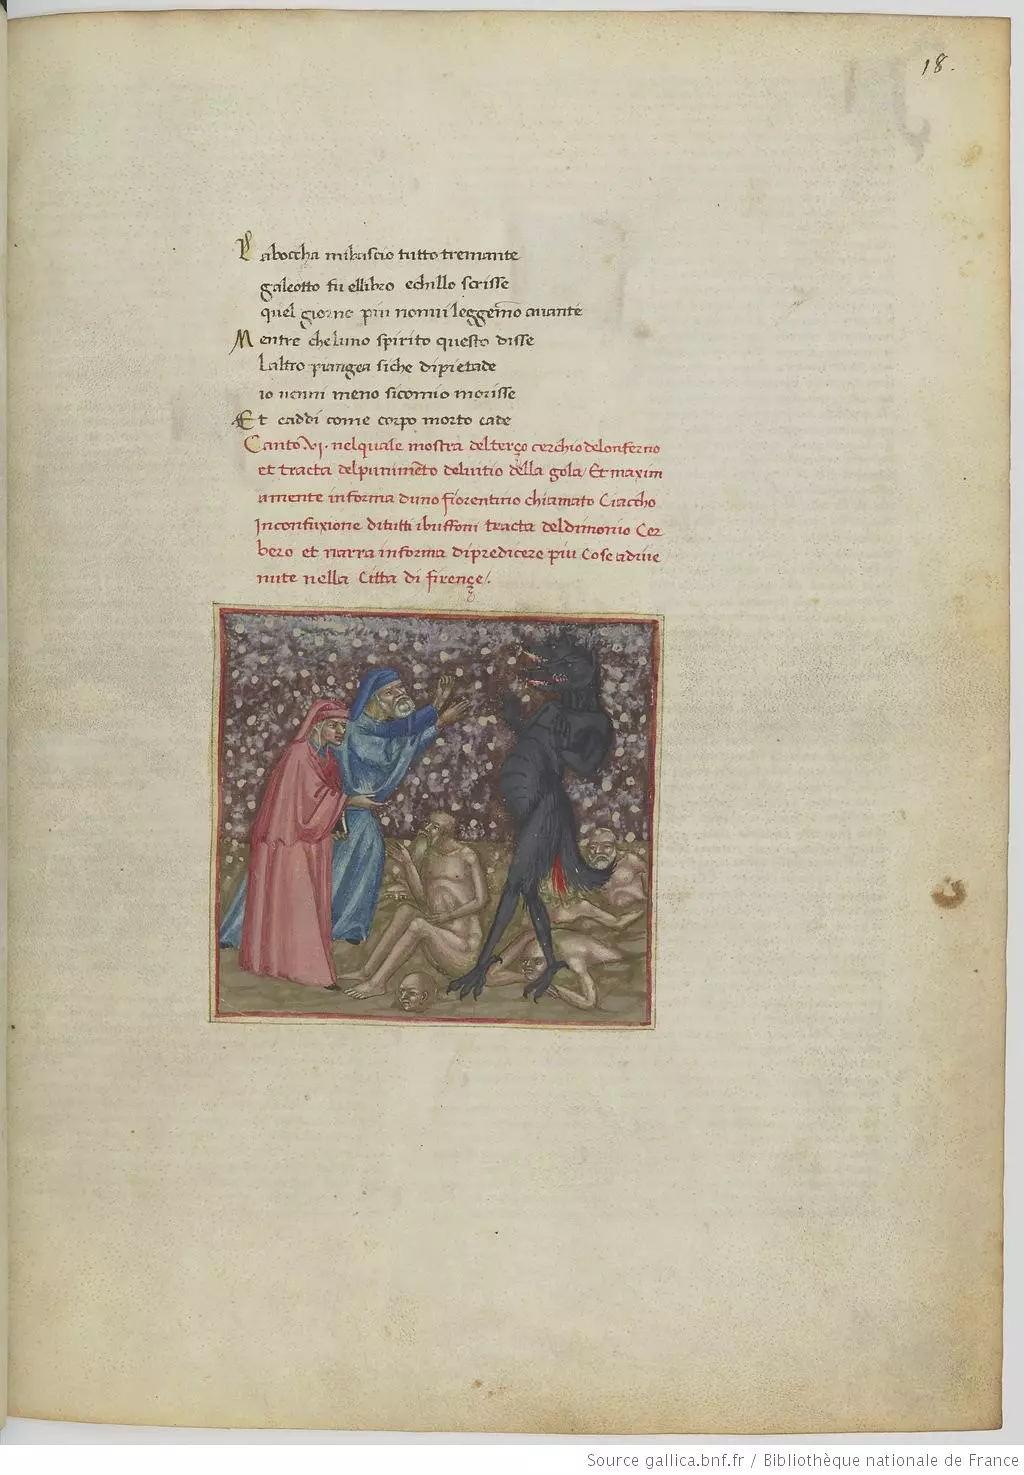 18.
La boccha mi bascio tutto tremante
galeotto fu ellibro echillo scrisse
quel giorno piu nonui leggemo auante
Mentre cheluno spirito questo disse
laltro piangea siche dipietade
io uenni meno sicomio morisse
Et caddi come corpo morto cade
Canto .VI. nelquale mostra delterço cerchio delonferno
et tracta delpunimēto deluitio della gola Et maxim
amente informa duno fiorentino chiamato Ciaccho
Inconfuxione ditutti ibuffoni tracta deldimonio Cer
bero et narra informa dipredicere piu cose adiue
nute nella Citta di firençe.
Source gallica.bnf.fr / Bibliothèque nationale de France